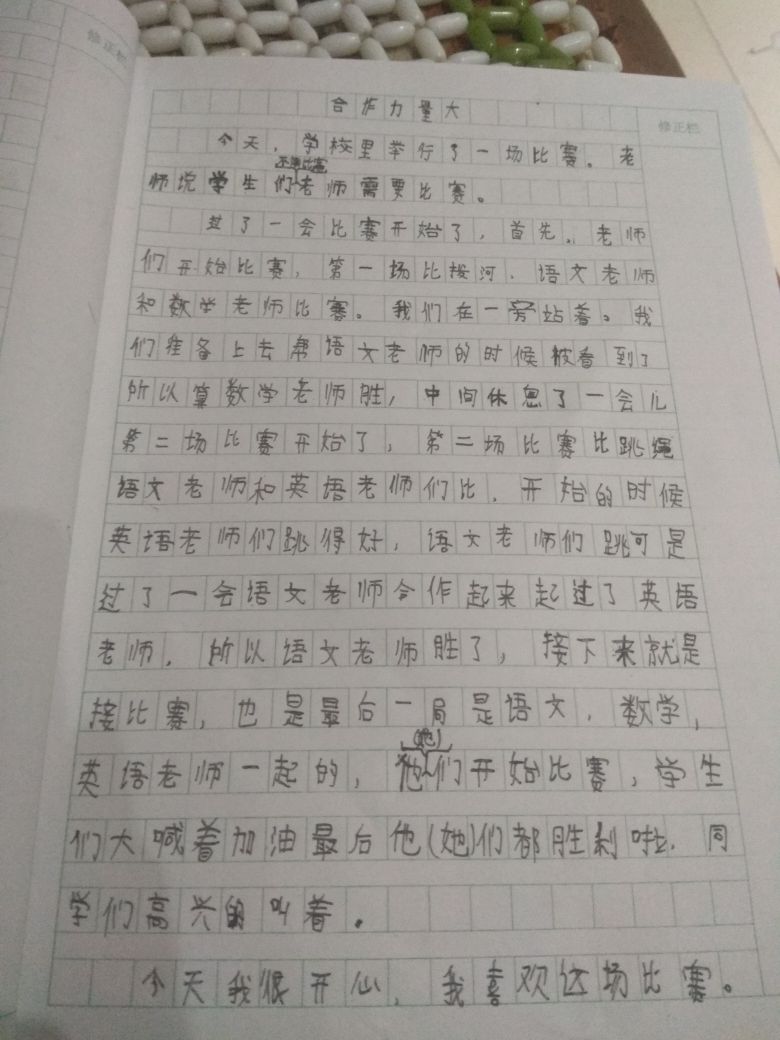 修正栏
修正栏
合作力量大
今天，学校里举行了一场比赛。老
不等比赛
师说学生们老师需要比赛。
过了一会比赛开始了，首先，老师
们开始比赛，第一场比拔河，语文老师
和数学老师比赛。我们在一旁站着。我
们准备上去帮语文老师的时候被看到了
所以算数学老师胜，中间休息了一会儿
第二场比赛开始了，第二场比赛比跳绳
语文老师和英语老师们比，开始的时候
英语老师们跳得好，语文老师们跳可是
过了一会语文老师合作起来起过了英语
老师，所以语文老师胜了，接下来就是
接比赛，也是最后一局是语文，数学，
(她)
英语老师一起的，他们开始比赛，学生
们大喊着加油最后他(她)们都胜利啦，同
学们高兴的叫着。
今天我很开心，我喜欢这场比赛。